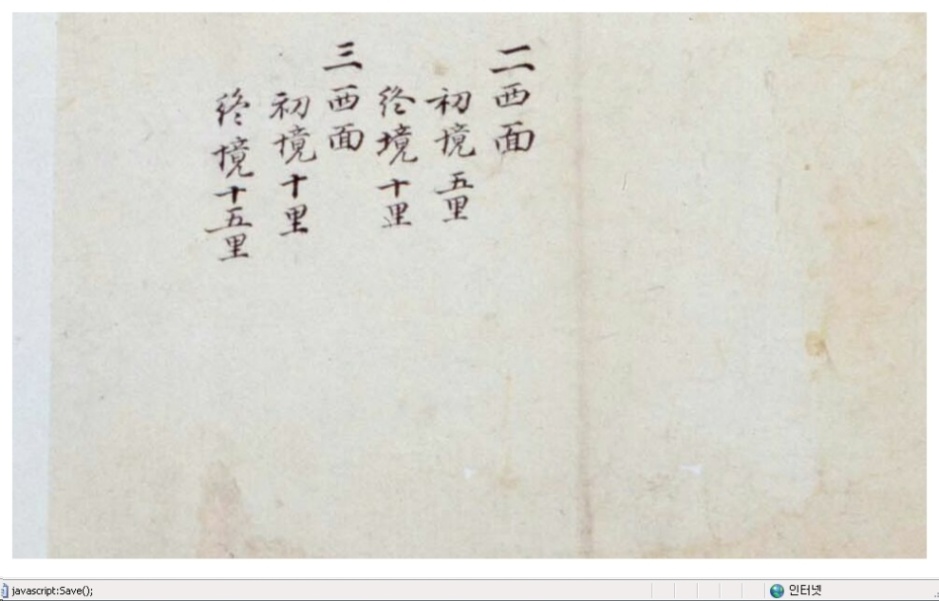 二西面
初境五里
終境十里
三西面
初境十里
終境十五里
javascript:Save();
인터넷